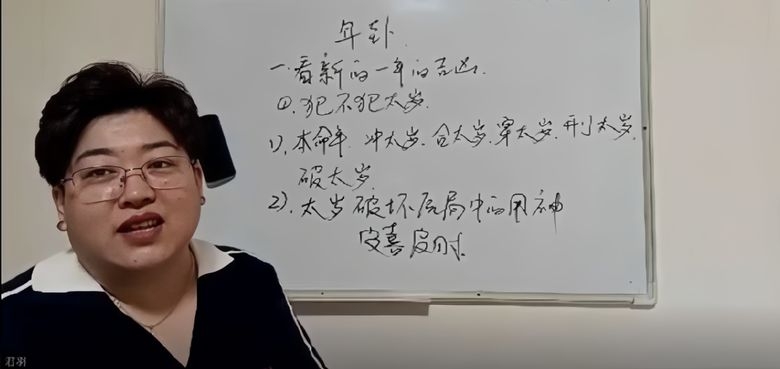 年卦.
一.看新的一年的吉凶.
①.犯不犯太岁.
1).本命年.冲太岁.合太岁.穿太岁.刑太岁.
破太岁.
2).太岁破坏原局中的用神